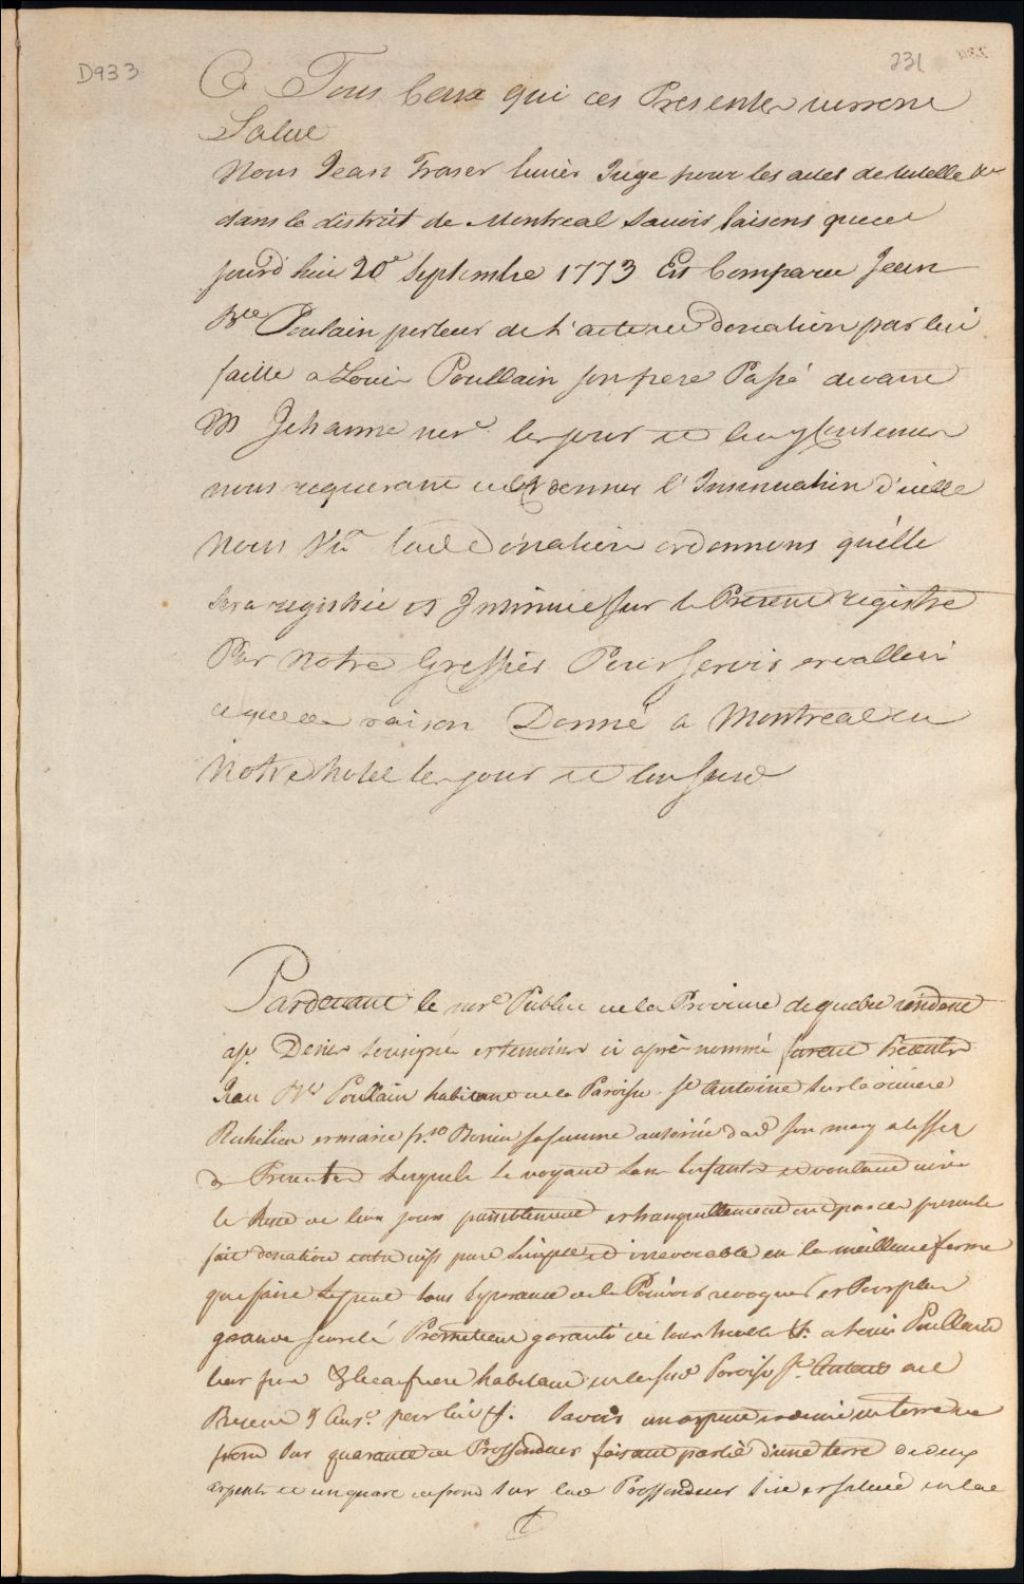 D933
231
A Tous Ceux qui ces Presentes verront
Salut
Nous Jean Fraser Ecuier Juge pour les actes de tutelle &c
dans le district de Montreal Savoir faisons que ce
jourd'hui 20e Septembre 1773 Est Comparu Jean
Bte Poulain porteur de l'acte de donation par lui
faitte a Louis Poullain son frere Passé devant
Me Jehanne nore les jour et an y contenus
nous requerant d'ordonner l'Insinuation d'icelle
Nous Vu lad Donation ordonnons qu'elle
sera registrée et Insinuée sur le Present registre
Par Notre Greffier Pour servir et valloir
ce que de raison Donné a Montreal en
Notre hotel les jour et an susd
Pardevant le nore Public de la Province de quebec résident
a St Denis soussigné et temoins ci après nommé furent Présents
Jean Bte Poullain habitant de la Paroisse St Antoine sur la riviere
Richelieu et marie fse Bonin sa femme autorisée dud son mary a l'effet
des Presentes lesquels se voyant sans Enfants et voulant vivre
le Reste de leurs jours paisiblement et tranquillement ont par ces presentes
fait donation entre vifs pure simple et irrevocable en la meilleure forme
que faire se peut sans Esperance de la Pouvoir revoquer et Pour plus
grande sureté Promettent garantir de tous troubles &c a Louis Poullain
leur frere & beaufrere habitant de lasusd Paroisse St Antoine a ce
Present & Accept pour lui &c. Savoir un arpent et demie de terre de
front sur quarante de Proffondeur faisant partie d'une terre de deux
arpents et un quart de front sur lad Proffondeur sise et située en lad